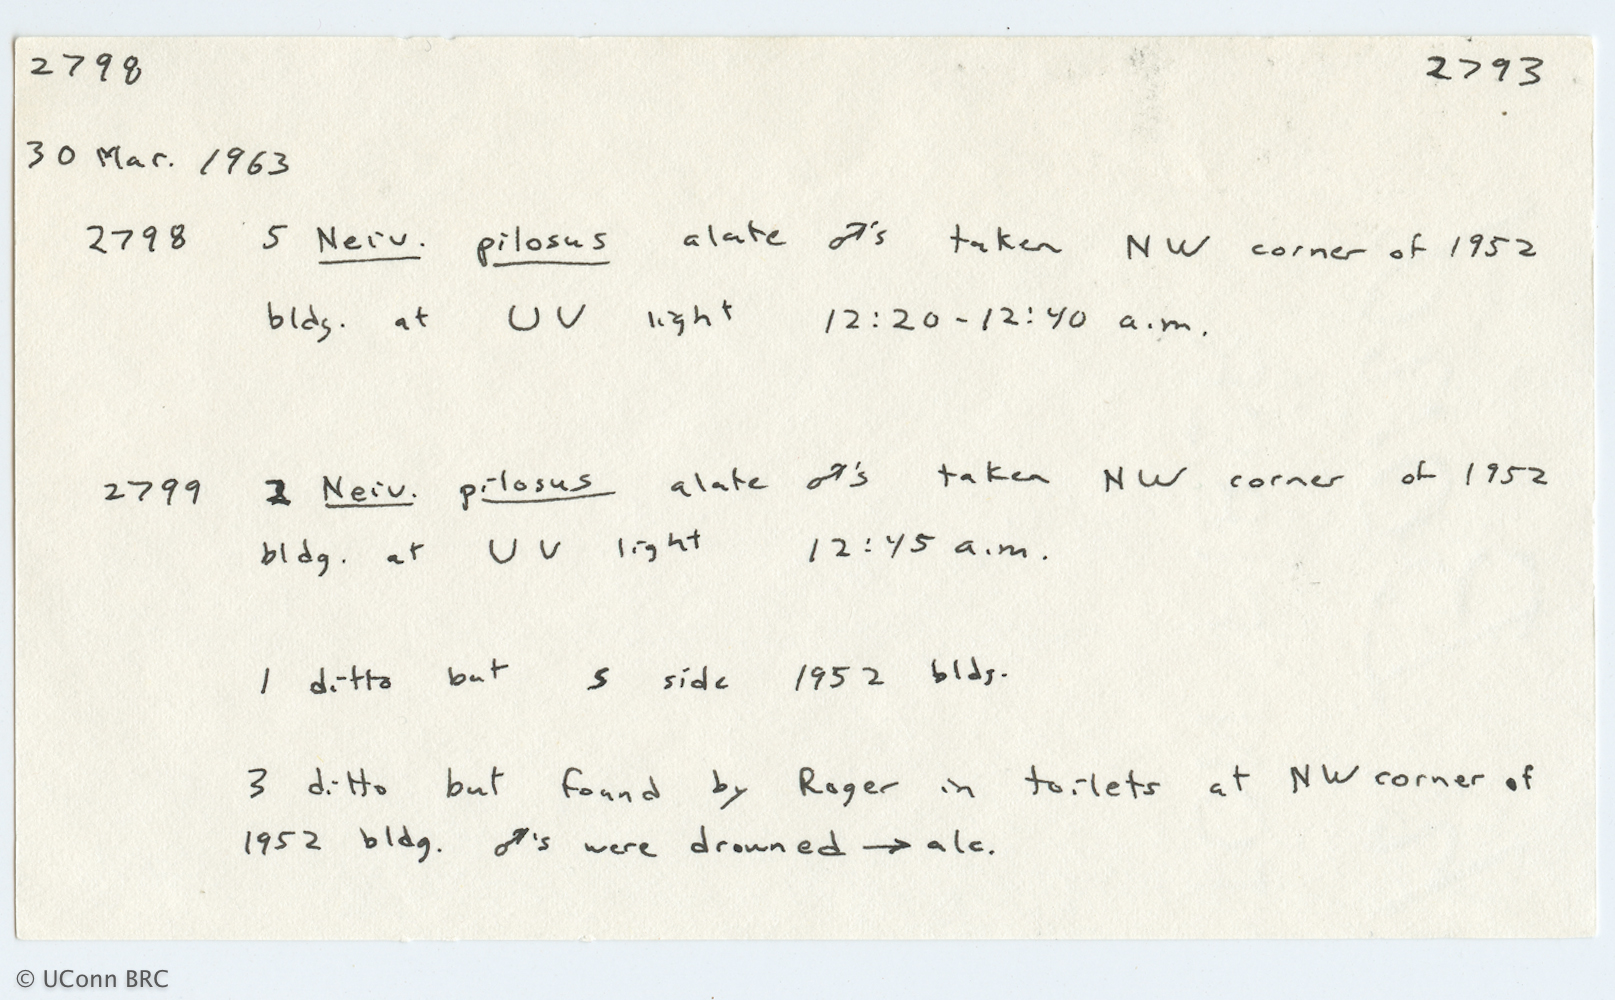 2798 2793
30 Mar. 1963
2798 5 Neiv. pilosus alate ♂'s taken NW corner of 1952
bldg. at UV light 12:20-12:40 a.m.
2799 2 Neiv. pilosus alate ♂'s taken NW corner of 1952
bldg. at UV light 12:45 a.m.
1 ditto but S side 1952 bldg.
3 ditto but found by Roger in toilets at NW corner of
1952 bldg. ♂'s were drowned → alc.
© UConn BRC